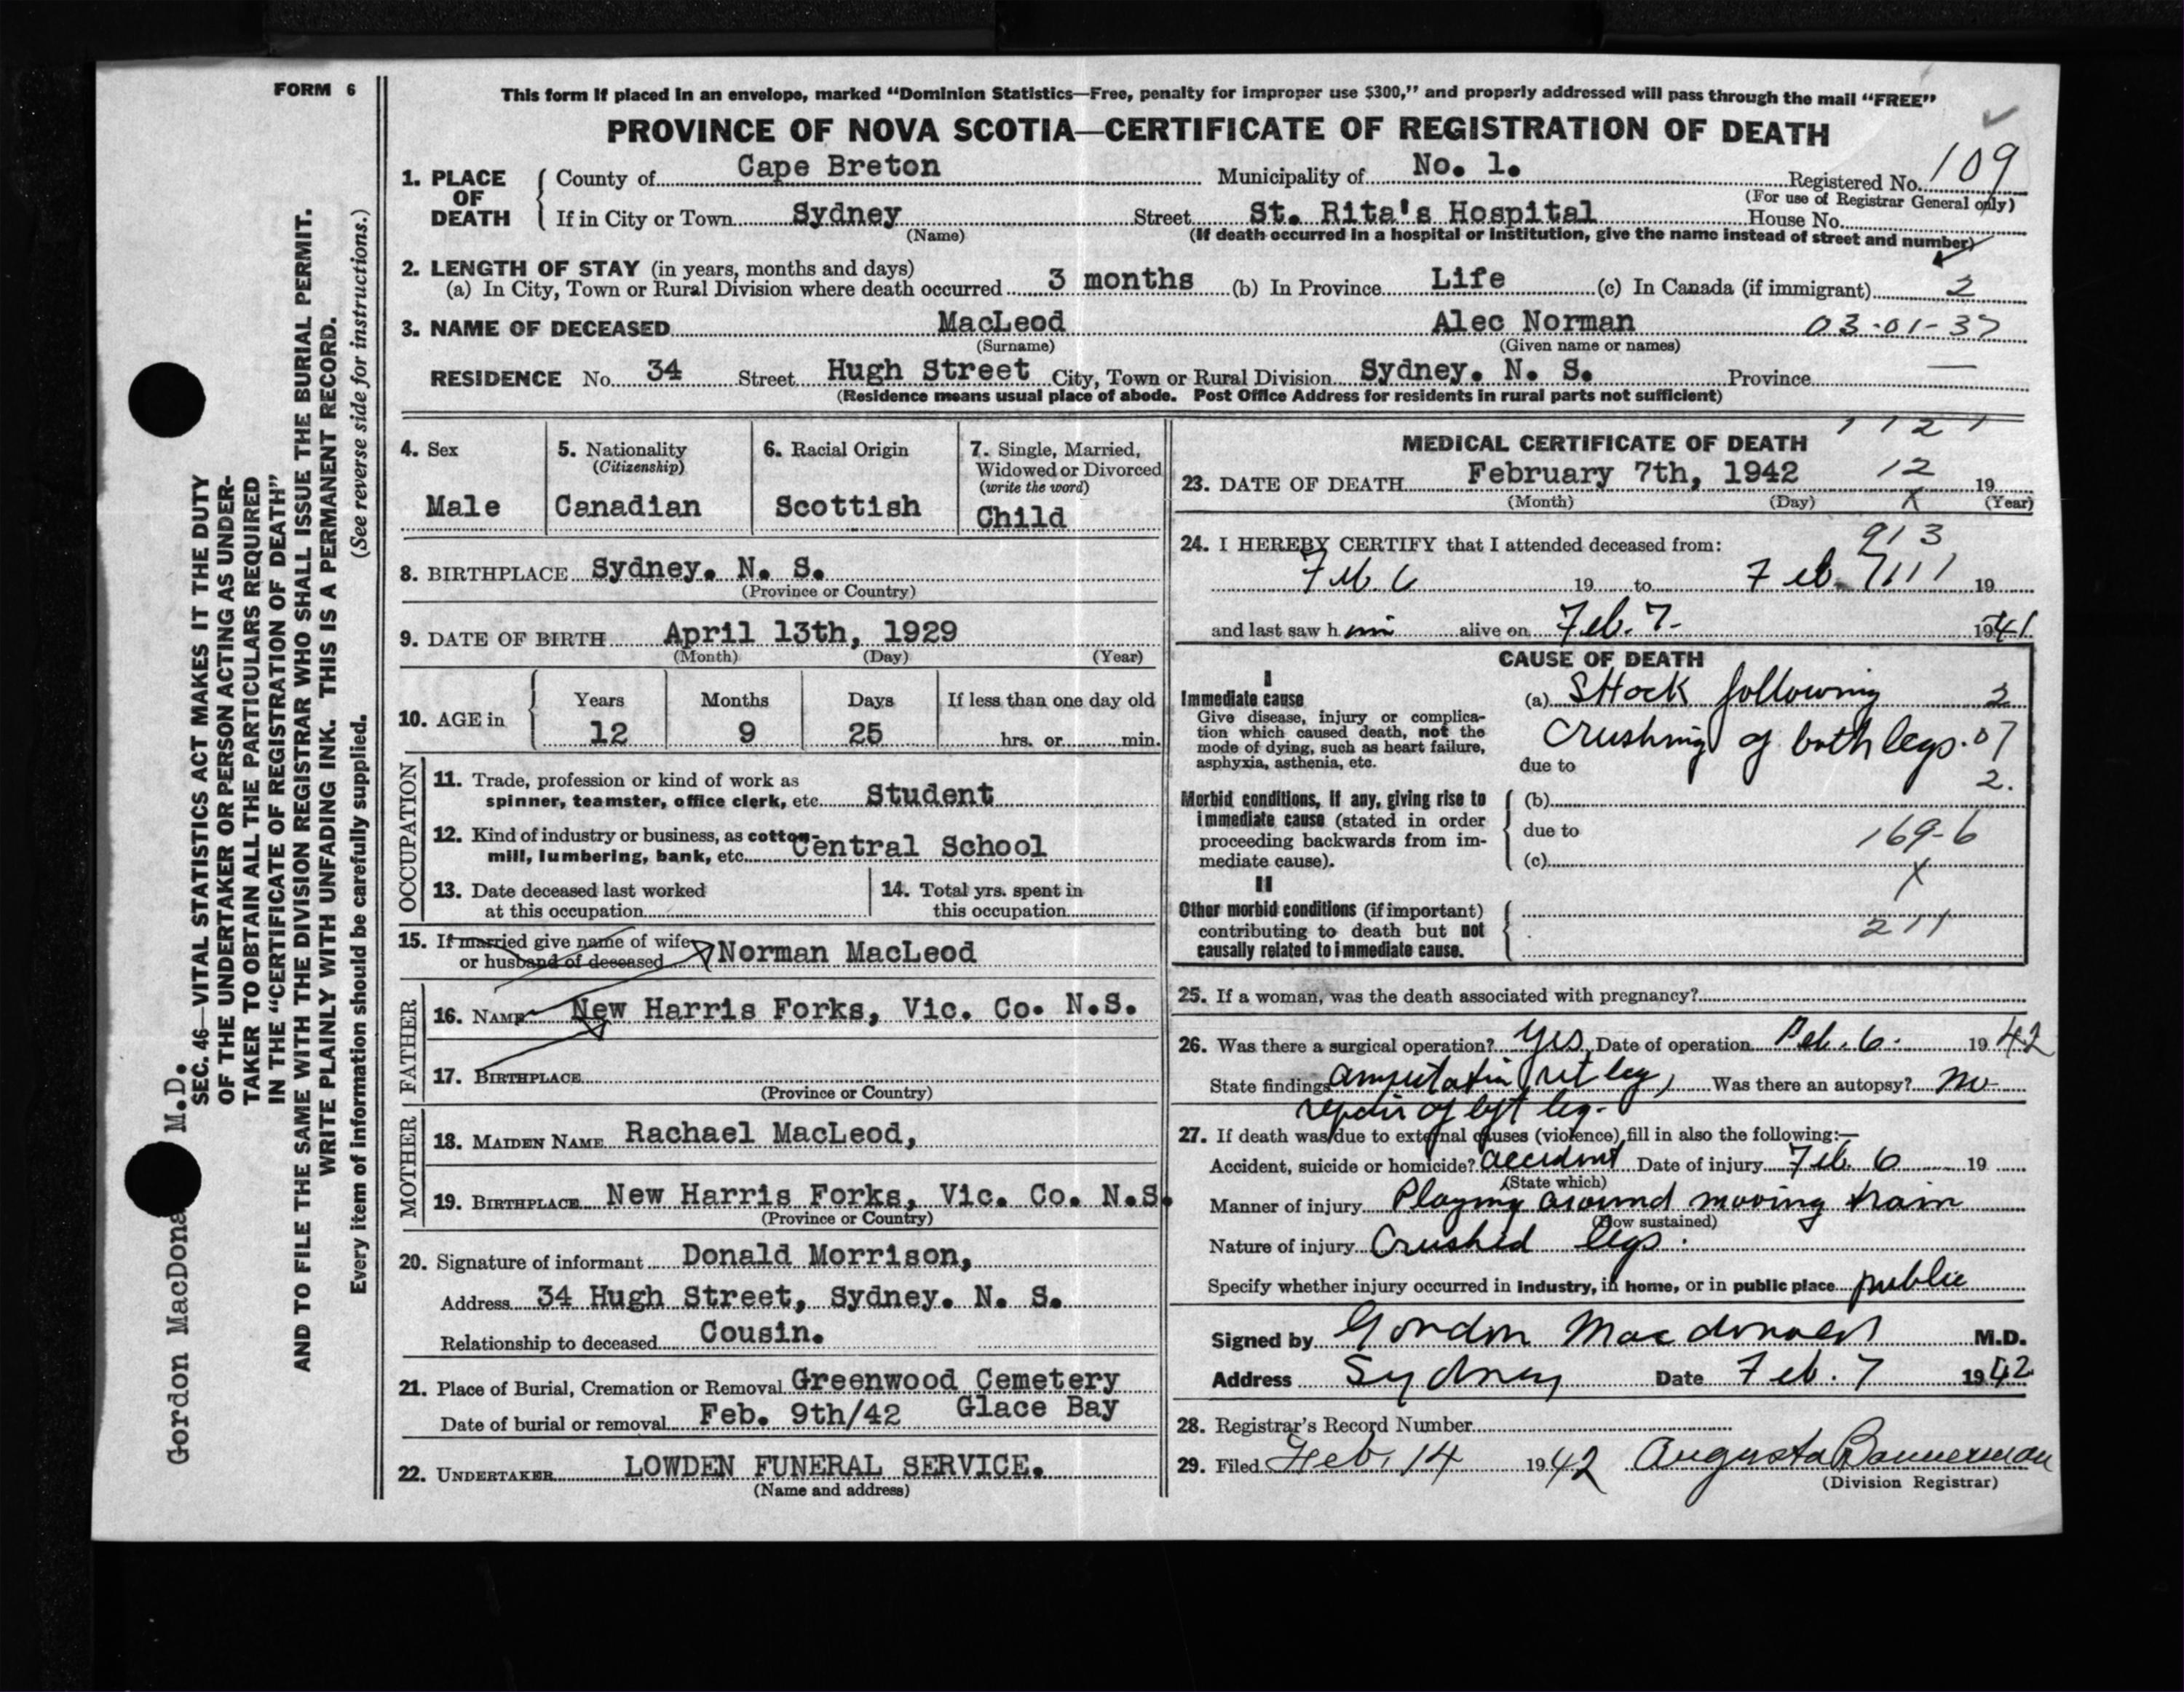 FORM 6
This form if placed in an envelope, marked "Dominion Statistics—Free, penalty for improper use $300," and properly addressed will pass through the mail "FREE"
PROVINCE OF NOVA SCOTIA—CERTIFICATE OF REGISTRATION OF DEATH
1. PLACE OF DEATH County of Cape Breton Municipality of No. 1. Registered No. 109
(For use of Registrar General only)
If in City or Town Sydney Street St. Rita's Hospital House No.
(Name) (If death occurred in a hospital or institution, give the name instead of street and number)
2. LENGTH OF STAY (in years, months and days)
(a) In City, Town or Rural Division where death occurred 3 months (b) In Province Life (c) In Canada (if immigrant) 2
3. NAME OF DECEASED MacLeod Alec Norman 03-01-37
(Surname) (Given name or names)
RESIDENCE No. 34 Street Hugh Street City, Town or Rural Division Sydney. N. S. Province —
(Residence means usual place of abode. Post Office Address for residents in rural parts not sufficient)
4. Sex
Male
5. Nationality
(Citizenship)
Canadian
6. Racial Origin
Scottish
7. Single, Married,
Widowed or Divorced
(write the word)
Child
8. BIRTHPLACE Sydney. N. S.
(Province or Country)
9. DATE OF BIRTH April 13th, 1929
(Month) (Day) (Year)
10. AGE in Years Months Days If less than one day old
12 9 25 hrs. or min.
OCCUPATION
11. Trade, profession or kind of work as
spinner, teamster, office clerk, etc. Student
12. Kind of industry or business, as cotton-
mill, lumbering, bank, etc. Central School
13. Date deceased last worked
at this occupation
14. Total yrs. spent in
this occupation
15. If married give name of wife
or husband of deceased Norman MacLeod
FATHER
16. NAME New Harris Forks, Vic. Co. N.S.
17. BIRTHPLACE
(Province or Country)
MOTHER
18. MAIDEN NAME Rachael MacLeod,
19. BIRTHPLACE New Harris Forks, Vic. Co. N.S.
(Province or Country)
20. Signature of informant Donald Morrison,
Address 34 Hugh Street, Sydney. N. S.
Relationship to deceased Cousin.
21. Place of Burial, Cremation or Removal Greenwood Cemetery
Date of burial or removal Feb. 9th/42 Glace Bay
22. UNDERTAKER LOWDEN FUNERAL SERVICE.
(Name and address)
1121
MEDICAL CERTIFICATE OF DEATH
12
23. DATE OF DEATH February 7th, 1942 19
(Month) (Day) (Year)
X
24. I HEREBY CERTIFY that I attended deceased from:
913
Feb. 6 19 to Feb. 7 111 19
and last saw him alive on Feb. 7- 1941
CAUSE OF DEATH
I
Immediate cause
Give disease, injury or complica-
tion which caused death, not the
mode of dying, such as heart failure,
asphyxia, asthenia, etc.
(a) Shock following 2
Crushing of both legs. 07
due to
2.
Morbid conditions, if any, giving rise to
immediate cause (stated in order
proceeding backwards from im-
mediate cause).
(b)
due to 169-6
(c)
X
II
Other morbid conditions (if important)
contributing to death but not
causally related to immediate cause.
211
25. If a woman, was the death associated with pregnancy?
26. Was there a surgical operation? Yes Date of operation Feb. 6. 1942
State findings amputation rt leg, Was there an autopsy? no
repair of left leg.
27. If death was due to external causes (violence) fill in also the following:—
Accident, suicide or homicide? accident Date of injury Feb. 6 19
(State which)
Manner of injury Playing around moving train
(How sustained)
Nature of injury Crushed legs.
Specify whether injury occurred in industry, in home, or in public place public
Signed by Gordon Macdonald M.D.
Address Sydney Date Feb. 7 1942
28. Registrar's Record Number
29. Filed Feb. 14 1942 Augusta Bannerman
(Division Registrar)
Gordon MacDona M.D.
SEC. 46—VITAL STATISTICS ACT MAKES IT THE DUTY
OF THE UNDERTAKER OR PERSON ACTING AS UNDER-
TAKER TO OBTAIN ALL THE PARTICULARS REQUIRED
IN THE "CERTIFICATE OF REGISTRATION OF DEATH"
AND TO FILE THE SAME WITH THE DIVISION REGISTRAR WHO SHALL ISSUE THE BURIAL PERMIT.
WRITE PLAINLY WITH UNFADING INK. THIS IS A PERMANENT RECORD.
Every item of information should be carefully supplied. (See reverse side for instructions.)